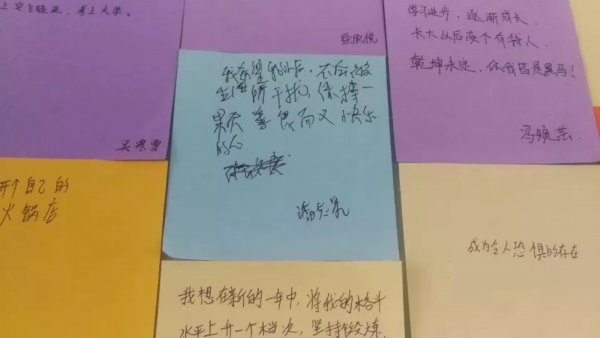 上完了班业，考上大学。
吴寒雪
徐欣悦
学习进步，逐渐成长
长大以后要个有钱人
乾坤未定，你我皆是黑马！
冯婉芸
我希望我以后，不会被
生活所干扰，保持一
果页善良而又快乐
的心
开个自己的
火锅店
成为令人恐惧的存在
我想在新的一年中，将我的格斗
水平上升一个档次，坚持锻炼